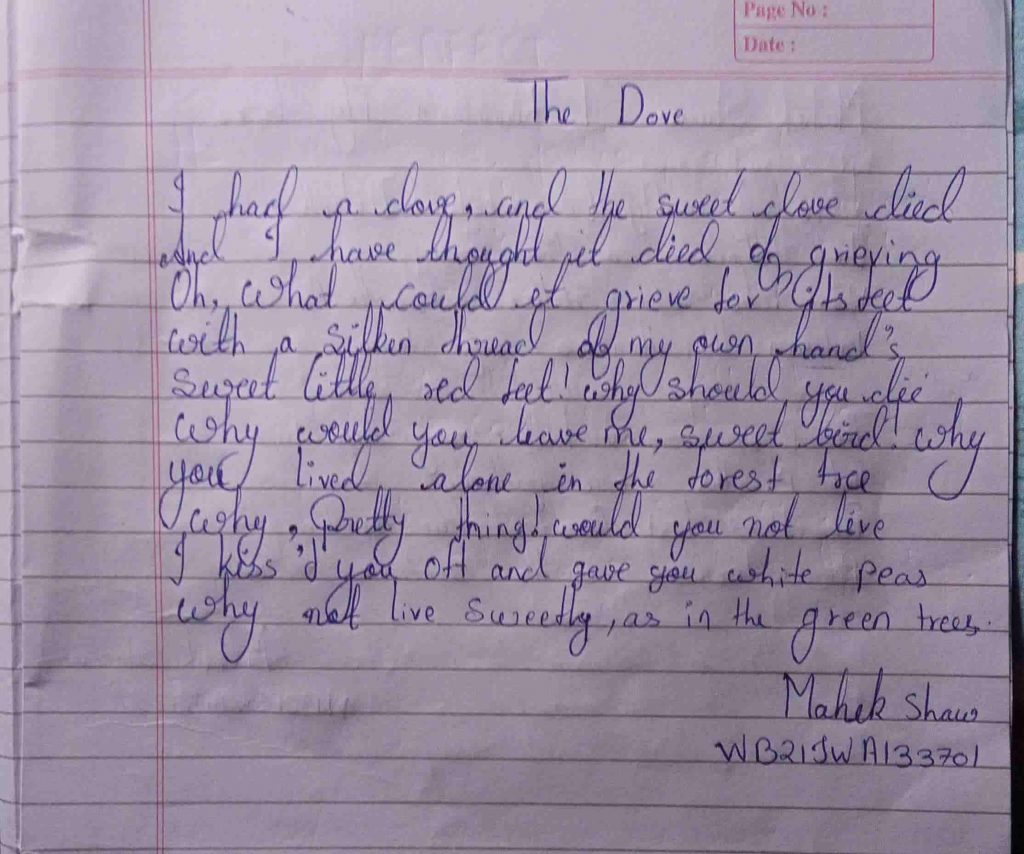 Page No :
Date :
The Dove
I had a dove, and the sweet dove died
And I have thought it died of grieving
Oh, what could et grieve for its feet
with a silken thread of my own hand's
sweet little red feet! why should you die
why would you leave me, sweet bird! why
you lived alone in the forest tree
why, Pretty thing! would you not live
I kiss'd you oft and gave you white peas
why not live sweetly, as in the green trees.
Mahek Shaw
WB21SWA133701